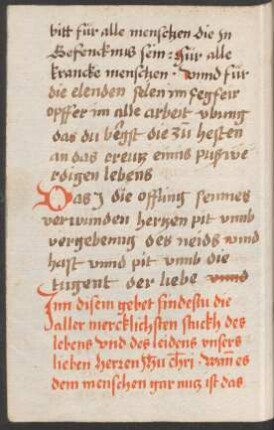 bitt für alle menschen die jn
Gefencknus sein : Für alle
krancke menschen · vnnd für
die elenden selen im fegfeir
opffer im alle arbeit vbung
das du bergst die zů hefften
an das creutz einis pußwe
rdigen lebens
Das j die offnung seines
verwunden hertzen pit vmb
vergebenng des neids vnd
haß vnnd pit vmb die
tugent der liebe vnnd
Jnn disem gebet findestu die
aller mercklichsten stuckh des
lebens vnd des leidens vnsers
lieben herren Jhu chri · wan es
dem menschen gar nutz ist das